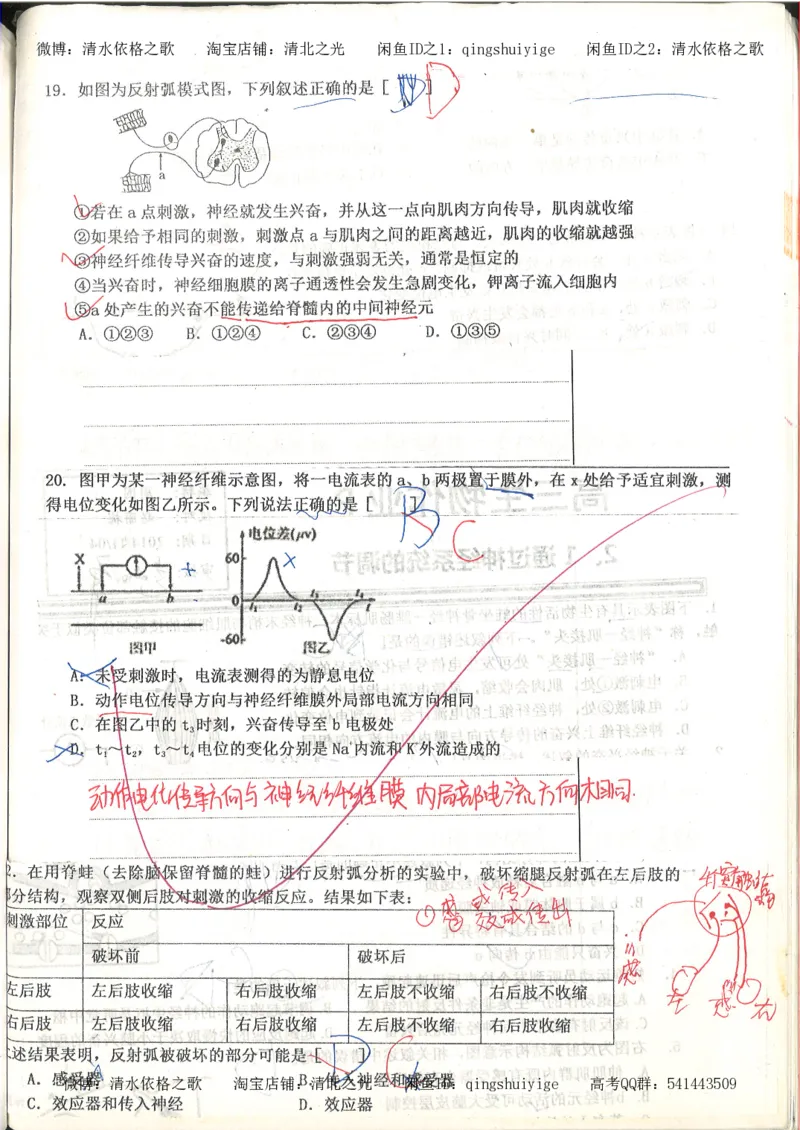 微博：清水依格之歌 淘宝店铺：清北之光 闲鱼ID之1：qingshuiyige 闲鱼ID之2：清水依格之歌
19．如图为反射弧模式图，下列叙述正确的是［ D ］
a
①若在a点刺激，神经就发生兴奋，并从这一点向肌肉方向传导，肌肉就收缩
②如果给予相同的刺激，刺激点a与肌肉之间的距离越近，肌肉的收缩就越强
③神经纤维传导兴奋的速度，与刺激强弱无关，通常是恒定的
④当兴奋时，神经细胞膜的离子通透性会发生急剧变化，钾离子流入细胞内
⑤a处产生的兴奋不能传递给脊髓内的中间神经元
A．①②③ B．①②④ C．②③④ D．①③⑤
20．图甲为某一神经纤维示意图，将一电流表的a、b两极置于膜外，在x处给予适宜刺激，测
得电位变化如图乙所示。下列说法正确的是［ B ］ C
电位差(μv)
X 60
a b 0 t₁ t₂ t₃ t₄ t
-60
图甲 图乙
A．未受刺激时，电流表测得的为静息电位
B．动作电位传导方向与神经纤维膜外局部电流方向相同
C．在图乙中的t₃时刻，兴奋传导至b电极处
D．t₁～t₂，t₃～t₄电位的变化分别是Na⁺内流和K⁺外流造成的
动作电位传导方向与神经纤维膜内局部电流方向相同.
2．在用脊蛙（去除脑保留脊髓的蛙）进行反射弧分析的实验中，破坏缩腿反射弧在左后肢的
部分结构，观察双侧后肢对刺激的收缩反应。结果如下表：
①感或传入
效或传出
刺激部位 反应
破坏前 破坏后
左后肢 左后肢收缩 右后肢收缩 左后肢不收缩 右后肢不收缩
右后肢 左后肢收缩 右后肢收缩 左后肢不收缩 右后肢收缩
感
左 感 右
上述结果表明，反射弧被破坏的部分可能是［ D ］ C
A．感受器 B．传入神经和感受器
微博：清水依格之歌 淘宝店铺：清北之光 闲鱼ID：qingshuiyige 高考QQ群：541443509
C．效应器和传入神经 D．效应器